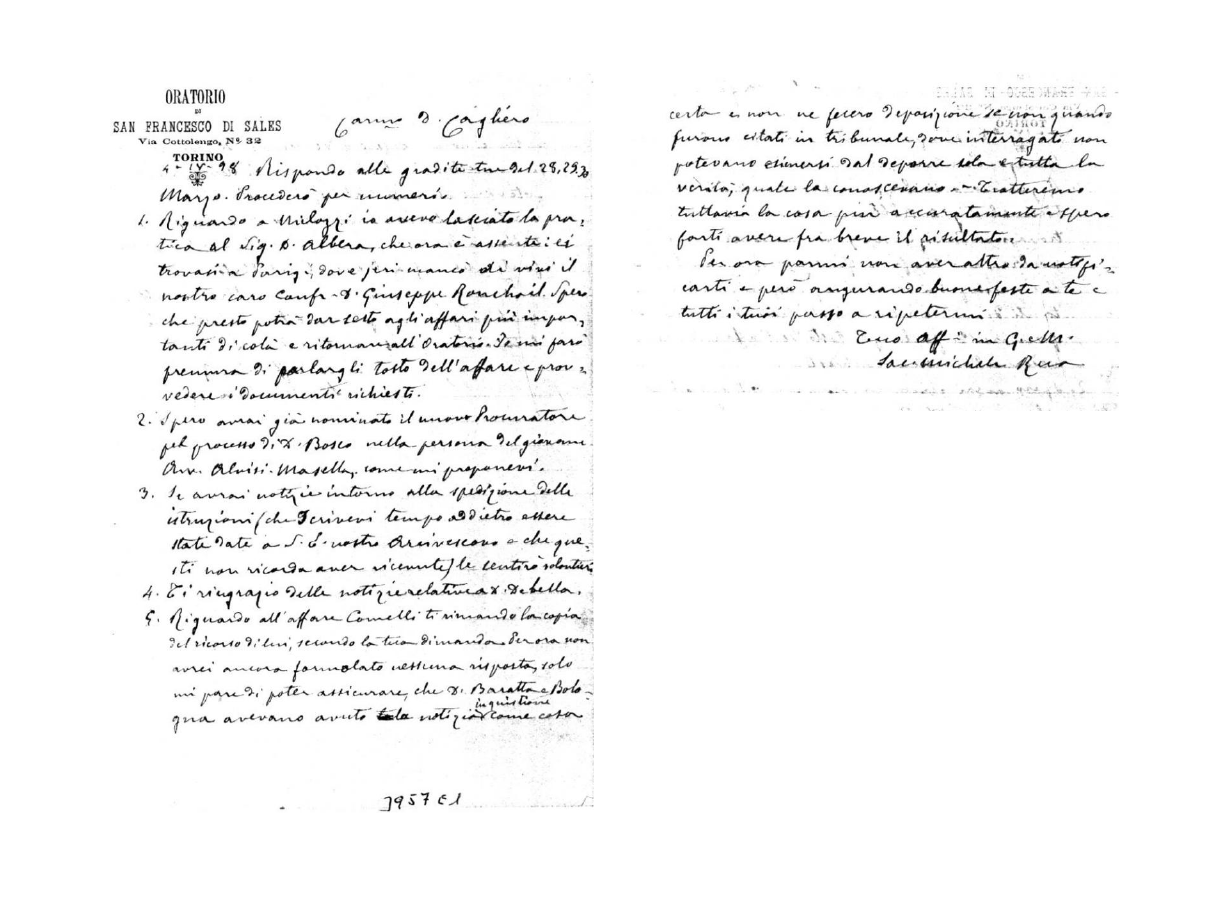 ORATORIO
DI
SAN FRANCESCO DI SALES
Via Cottolengo, Nº 32
TORINO
Carmo D. Cagliero
4-IV-98 Rispondo alle gradite tue del 28, 29, 30
Marzo. Procederò per numeri.
1. Riguardo a Milazzi io avevo lasciato la pra-
tica al Sig. D. Albera, che ora è assente: ei
trovasi a Parigi, dove jeri mancò di vivi il
nostro caro Confr. D. Giuseppe Ronchail. Spero
che presto potrà dar sesto agli affari più impor-
tanti di colà e ritornare all'Oratorio. Io mi farò
premura di parlargli tosto dell'affare e prov-
vedere i documenti richiesti.
2. Spero avrai già nominato il nuovo Procuratore
pel processo di D. Bosco nella persona del giovane
Avv. Aloisi-Masella, come mi proponevi.
3. Se avrai notizie intorno alla spedizione delle
istruzioni (che scrivevi tempo addietro essere
state date a S. E. nostro Arcivescovo e che que-
sti non ricorda aver ricevute) le sentirò volentieri
4. Ti ringrazio delle notizie relative a D. Debella.
5. Riguardo all'affare Comelli ti rimando la copia
del ricorso di lui, secondo la tua dimanda. Per ora non
avrei ancora formolato nessuna risposta, solo
mi pare di poter assicurare, che D. Baratta e Bolo-
gna avevano avuto la notizia in quistione come cosa
1957 C1
certa e non ne fecero deposizione se non quando
furono citati in tribunale, dove interrogati non
potevano esimersi dal deporre sola e tutta la
verità, quale la conoscevano. - Tratteremo
tuttavia la cosa più accuratamente e spero
farti avere fra breve il risultato.
Per ora parmi non aver altro da notifi-
carti e però augurando buone feste a te e
tutti i tuoi passo a ripetermi
Tuo aff in G. e M.
Sac. Michele Rua